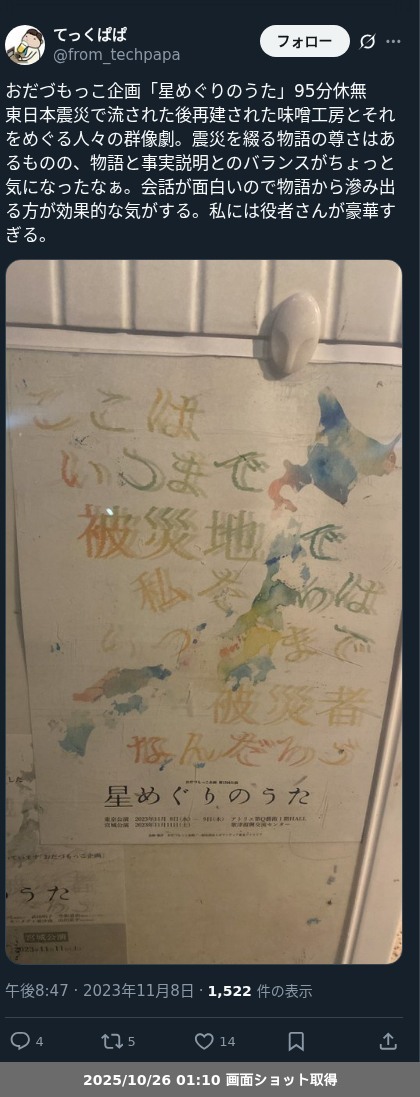 てっくぱぱ
@from_techpapa
フォロー
おだづもっこ企画「星めぐりのうた」95分休無
東日本震災で流された後再建された味噌工房とそれ
をめぐる人々の群像劇。震災を綴る物語の尊さはあ
るものの、物語と事実説明とのバランスがちょっと
気になったなぁ。会話が面白いので物語から滲み出
る方が効果的な気がする。私には役者さんが豪華す
ぎる。
ここは
いつまで
被災地で
私たちは
いつまで
被災者
なんだろう
星めぐりのうた
うた
午後8:47 · 2023年11月8日 · 1,522 件の表示
4
5
14
2025/10/26 01:10 画面ショット取得